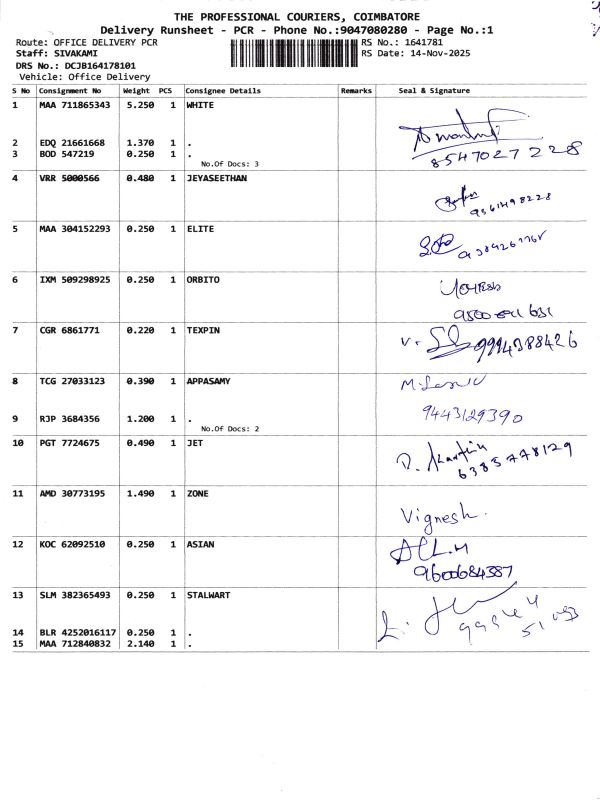 THE PROFESSIONAL COURIERS, COIMBATORE
Delivery Runsheet - PCR - Phone No.:9047080280 - Page No.:1
Route: OFFICE DELIVERY PCR RS No.: 1641781
Staff: SIVAKAMI RS Date: 14-Nov-2025
DRS No.: DCJB164178101
Vehicle: Office Delivery
S No Consignment No Weight PCS Consignee Details Remarks Seal & Signature
1 MAA 711865343 5.250 1 WHITE
2 EDQ 21661668 1.370 1 .
3 BOD 547219 0.250 1 . 8547027228
No.Of Docs: 3
4 VRR 5000566 0.480 1 JEYASEETHAN
9361498228
5 MAA 304152293 0.250 1 ELITE
6 IXM 509298925 0.250 1 ORBITO
7 CGR 6861771 0.220 1 TEXPIN
9994388426
8 TCG 27033123 0.390 1 APPASAMY
9 RJP 3684356 1.200 1 . 9443129390
No.Of Docs: 2
10 PGT 7724675 0.490 1 JET
6385778129
11 AMD 30773195 1.490 1 ZONE
Vignesh.
12 KOC 62092510 0.250 1 ASIAN
9600684387
13 SLM 382365493 0.250 1 STALWART
14 BLR 4252016117 0.250 1 .
15 MAA 712840832 2.140 1 .